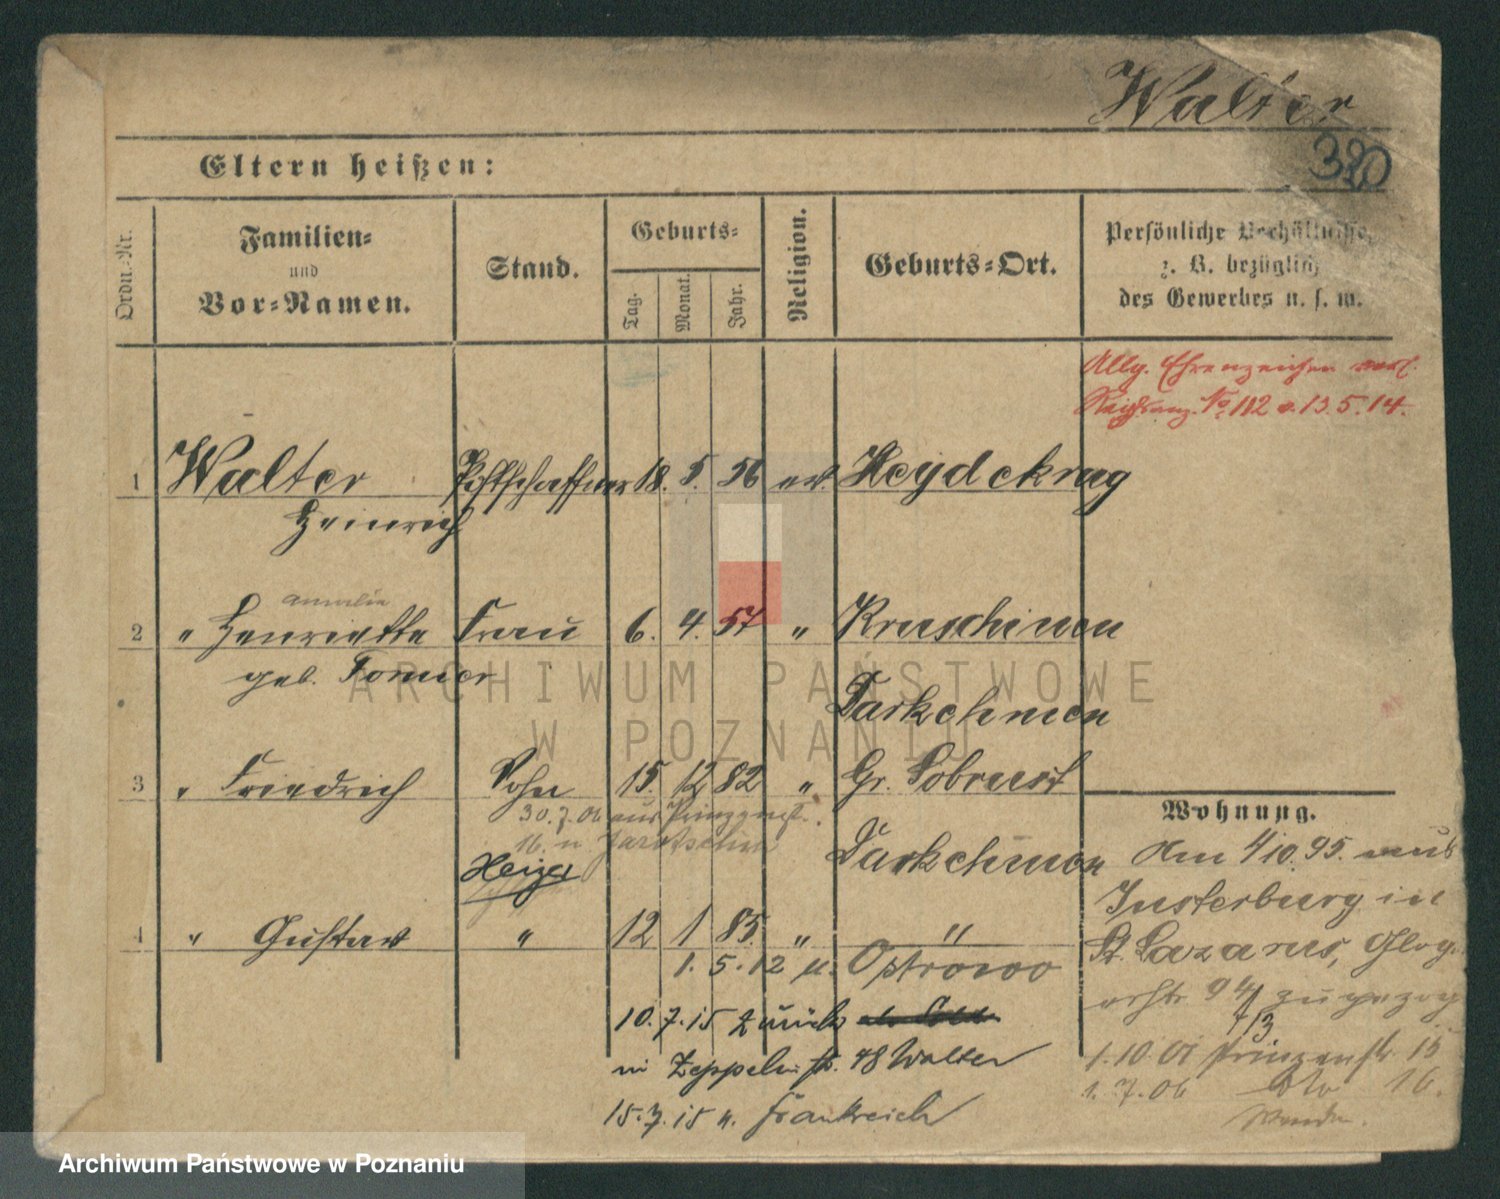 Walter
320
Eltern heißen:
Ordn.-Nr.
Familien-
und
Vor-Namen.
Stand.
Geburts-
Tag.
Monat.
Jahr.
Religion.
Geburts-Ort.
Persönliche Verhältnisse,
z. B. bezüglich
des Gewerbes u. s. w.
Allg. Ehrenzeichen verl.
Reichsanz. No 112 v. 13.5.14.
1 Walter Postschaffner 18. 5. 56 ev. Heydekrug
Heinrich
Amalie
2 " Henriette Frau 6. 4. 57 " Kruschinnen
geb. Darkehmen
3 " Friedrich Sohn 15. 12 82 " Gr. Sobrost
30.7.06 aus Prinzenst.
16. n. Jarotschin
Darkehmen
Heizer
4 " Gustav " 12 1 85. " "
1. 5. 12 n. Ostrowo
10.7.15 zurück
in Zeppelinstr. 48 Walter
15.7.15 n. Frankreich
Wohnung.
Am 1/10.95. aus
Insterburg in
St. Lazarus, Glog
94 zugezog
1.10.01 Prinzenstr. 15
1.7.06 16.
ARCHIWUM PAŃSTWOWE
W POZNANIU
Archiwum Państwowe w Poznaniu